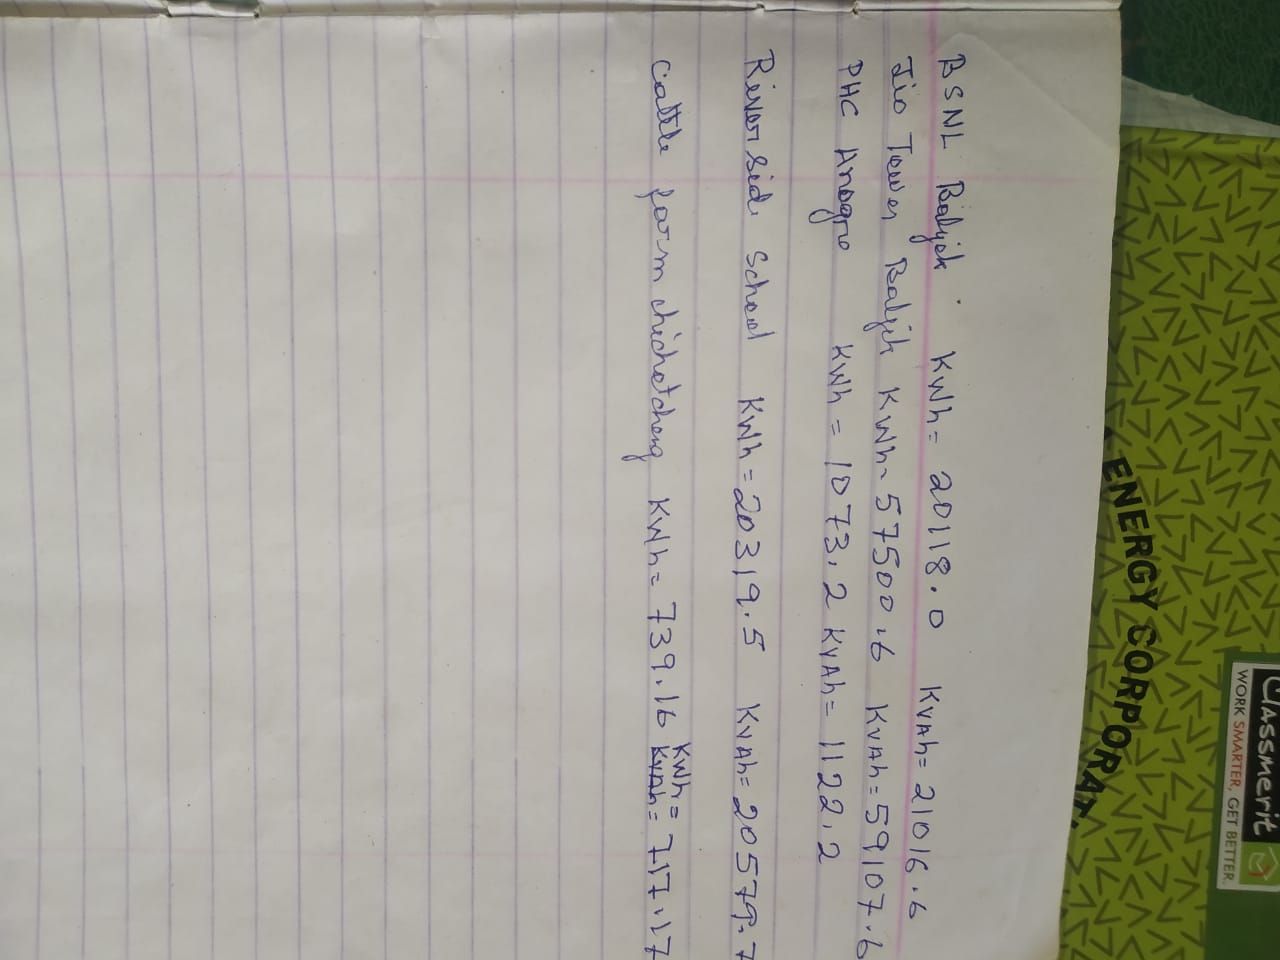 BSNL Baljek . KWh = 20118.0 KVAh = 21016.6
Jio Tower Baljek KWh = 57500.6 KVAh = 59107.6
PHC Anogre KWh = 1073.2 KVAh = 1122.2
River Side School KWh = 20319.5 KVAh = 20579.7
KWh =
Cattle farm chichotcheng KWh = 739.16 KVAh = 717.17
ENERGY CORPORAT
Classmerit
WORK SMARTER, GET BETTER.